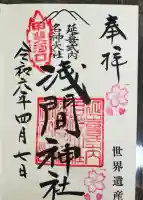 奉拝
世界遺産
延喜式内
名神大社
浅間神社
甲斐國
令和六年四月七日